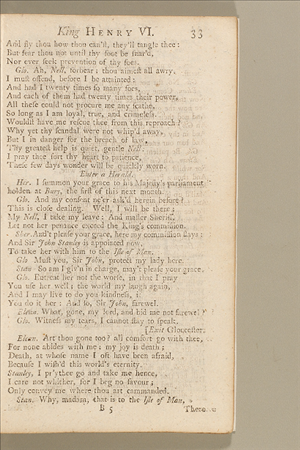 King HENRY VI. 33
And fly thou how thou can'st, they'll tangle thee:
But fear thou not until thy foot be snar'd,
Nor ever seek prevention of thy foes.
Glo. Ah, Nell, forbear: thou aimest all awry,
I must offend, before I be attainted:
And had I twenty times so many foes,
And each of them had twenty times their power,
All these could not procure me any scathe,
So long as I am loyal, true, and crimeless.
Wouldst have me rescue thee from this reproach?
Why yet thy scandal were not wip'd away,
But I in danger for the breach of law.
Thy greatest help is quiet, gentle Nell:
I pray thee sort thy heart to patience,
These few days wonder will be quickly worn.
Enter a Herald.
Her. I summon your grace to his Majesty's parliament
holden at Bury, the first of this next month.
Glo. And my consent ne'er ask'd herein before?
This is close dealing. Well, I will be there:
My Nell, I take my leave: And master Sheriff,
Let not her penance exceed the King's commission.
Sher. And't please your grace, here my commission stays:
And Sir John Stanley is appointed now,
To take her with him to the Isle of Man.
Glo. Must you, Sir John, protect my lady here.
Stan. So am I giv'n in charge, may't please your grace.
Glo. Entreat her not the worse, in that I pray
You use her well; the world may laugh again,
And I may live to do you kindness, if
You do it her: And so, Sir John, farewel.
Elean. What, gone, my lord, and bid me not farewel?
Glo. Witness my tears, I cannot stay to speak.
[Exit Gloucester.
Elean. Art thou gone too? all comfort go with thee,
For none abides with me; my joy is death;
Death, at whose name I oft have been afraid,
Because I wish'd this world's eternity.
Stanley, I pr'ythee go and take me hence,
I care not whither, for I beg no favour;
Only convey me where thou art commanded.
Stan. Why, madam, that is to the Isle of Man,
B 5 There